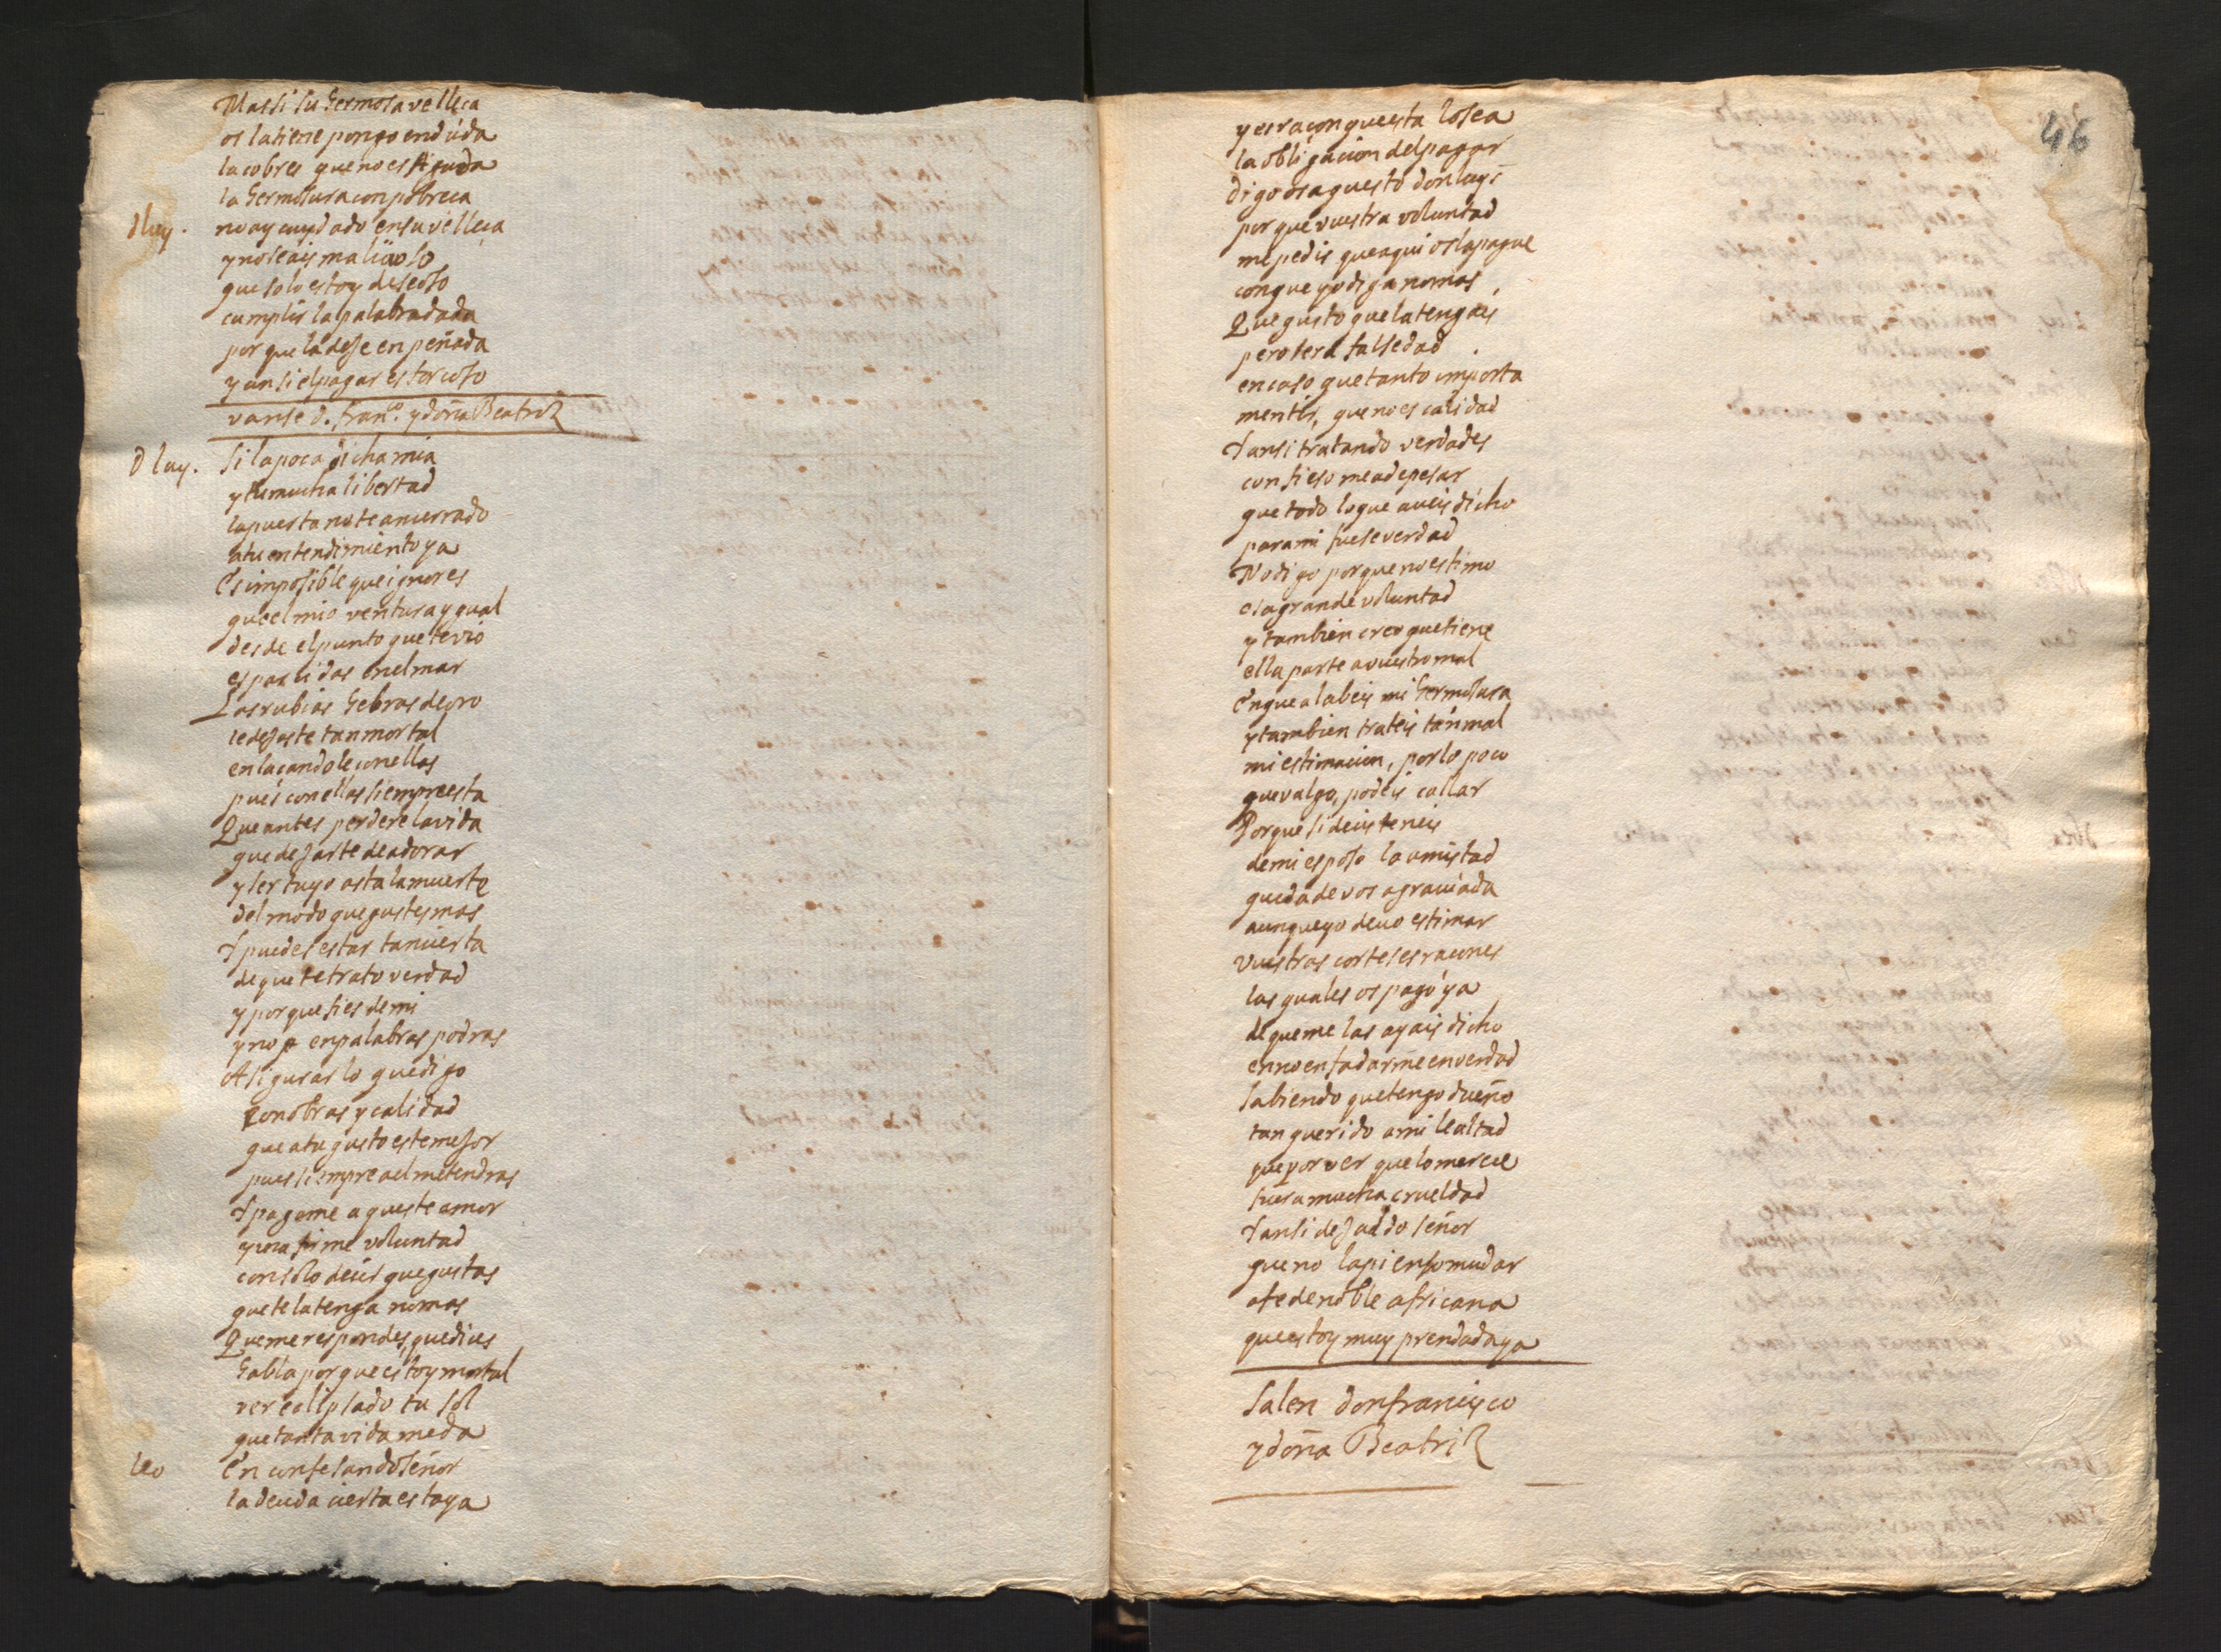 Mas si su hermosa velleça
os la tiene pongo en duda
la cobres que no es Aguda
la hermosura con pobreça
d luy. no ay cuydado en su velleça
y no seais malicioso
que solo estoy deseoso
cumplir la palabra dada
por que la dejé enpeñada
y ansi el pagar es forcoso
vanse d. fran.co y doña Beatriz
d luy. si la poca dicha mia
y tu mucha libertad
la puerta no te an cerrado
a tu entendimiento ya
Es imposible que ignores
que el mio ventura ygual
desde el punto que te vió
esparcidas en el mar
Las rubias hebras de oro
le dejaste tan mortal
enlaçandole con ellas
pues con ellas siempre esta
Que antes perdere la vida
que dejarte de adorar
y ser tuyo asta la muerte
del modo que gustes mas
Y puedes estar tan cierta
de que te trato verdad
y por que fies de mi
y no en palabras podras
Asigurar lo que digo
con obras y calidad
que a tu gusto esté mejor
pues siempre a el me tendras
Y pagame a queste amor
y una firme voluntad
con solo decir que gustas
que te la tenga no mas
Que me respondes, que dices
habla por que estoy mortal
ver eclipsado tu sol
que tanta vida me da
leo En confesando señor
la deuda cierta esta ya
46
y es raçon questa lo sea
la obligacion del pagar
digo os aquesto don luys
por que vuestra voluntad
me pedis que aqui os la pague
con que yo diga no mas
Que gusto que la tengais
pero sera falsedad
en caso que tanto importa
mentir, que no es calidad
Y ansi tratando verdades
confieso me a de pesar
que todo lo que aveis dicho
para mi fuese verdad
No digo porque no estimo
esa grande voluntad
y tambien creo que tiene
ella parte a vuestro mal
En que alabeis mi hermosura
y tambien trateis tan mal
mi estimacion, por lo poco
que valgo, podeis callar
Porque si decis teneis
de mi esposo la amistad
queda de vos agraviada
aunque yo devo estimar
vuestras corteses raçones
las quales os pagó ya
de que me las ayais dicho
en no enfadarme en verdad
sabiendo que tengo dueño
tan querido a mi lealtad
que por ver que lo merece
fuera mucha crueldad
Y ansi dejaldo señor
que no la pienso mudar
a fe de noble africana
que estoy muy prendada ya
salen don francisco
y doña Beatriz